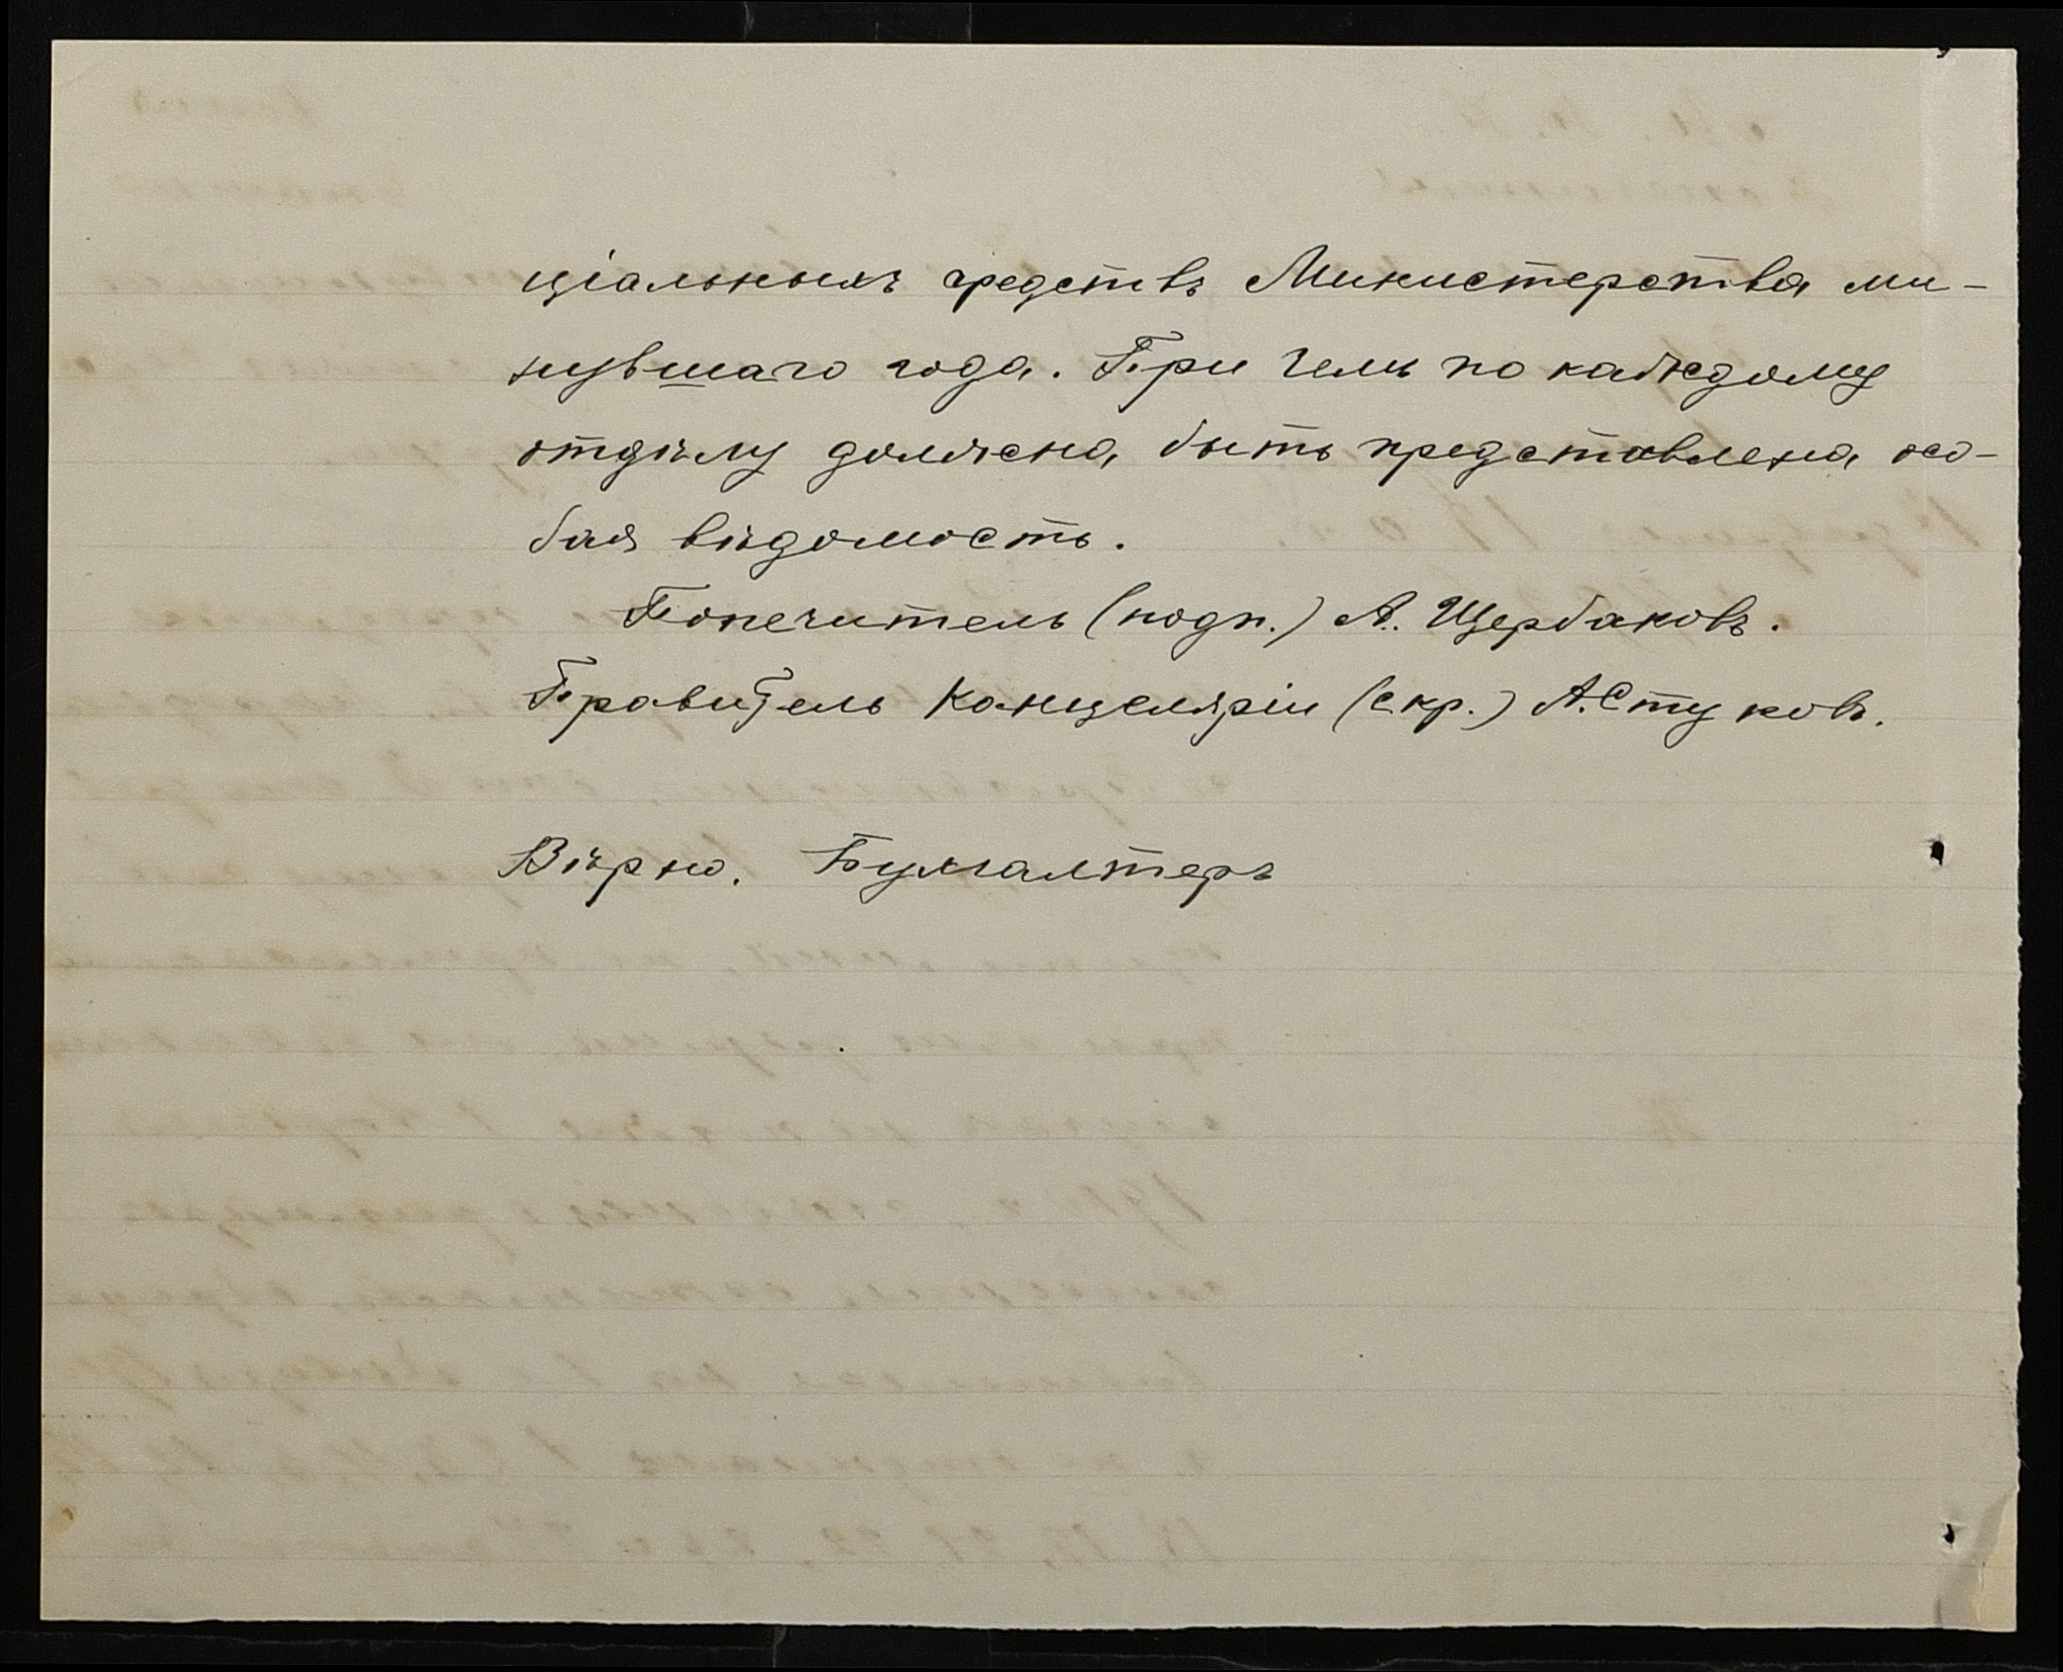 ціальныхъ средствъ Министерства ми-
нувшаго года. При чемъ по каждому
отдѣлу должна быть представлена осо-
бая вѣдомость.
Попечитель (подп.) А. Щербаковъ.
Правитель Канцеляріи (скр.) А. Стуковъ.
Вѣрно. Бухгалтеръ